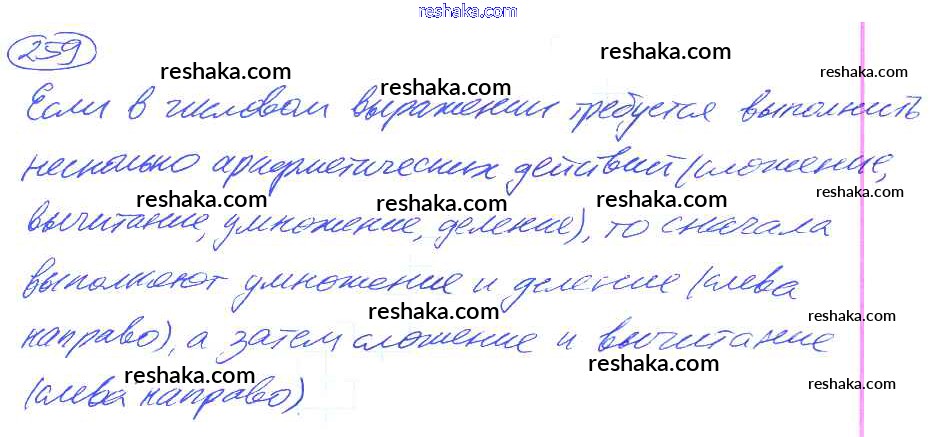 reshaka.com
259
reshaka.com
reshaka.com
reshaka.com
reshaka.com
Если в числовом выражении требуется выполнить
reshaka.com
несколько арифметических действий (сложение,
reshaka.com
reshaka.com
reshaka.com
reshaka.com
вычитание, умножение, деление), то сначала
выполняют умножение и деление (слева
reshaka.com
reshaka.com
направо), а затем сложение и вычитание
reshaka.com
reshaka.com
reshaka.com
(слева направо)